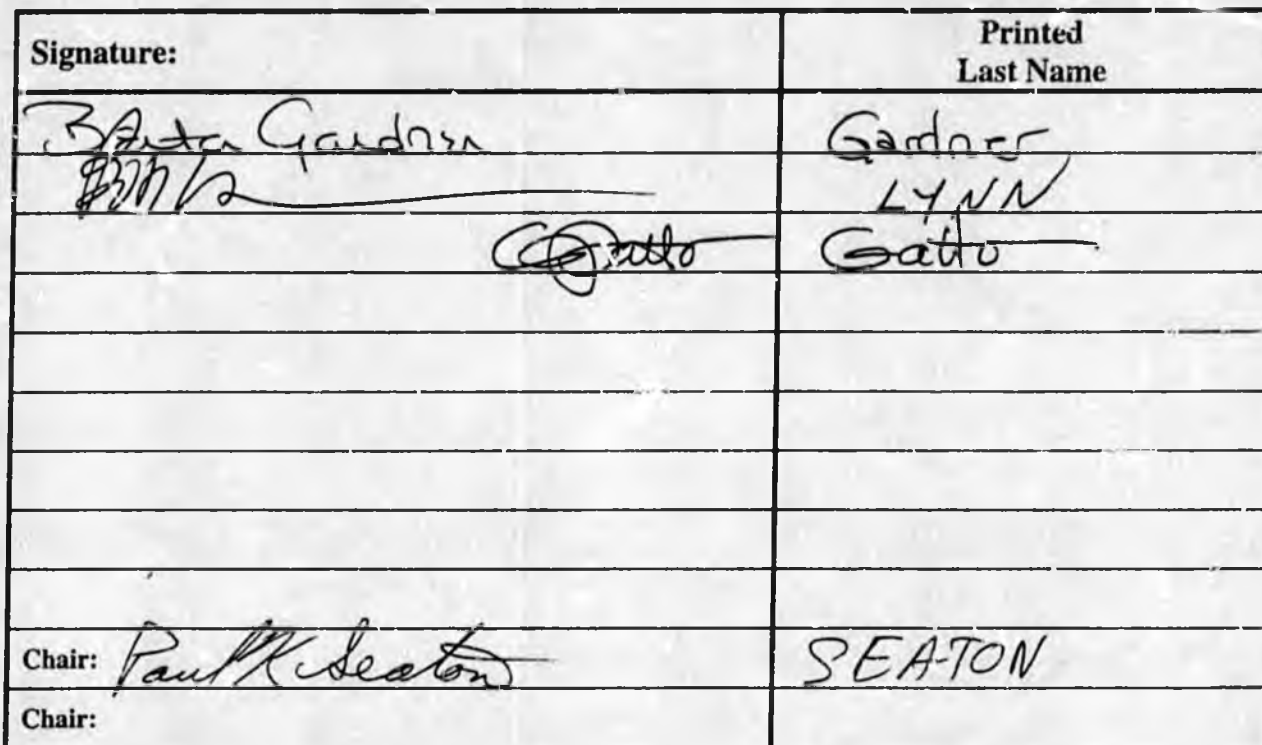 Signature: Printed Last Name
Berta Gardner Gardner
LYNN
Gatto Gatto
Chair: Paul K Seaton SEATON
Chair: